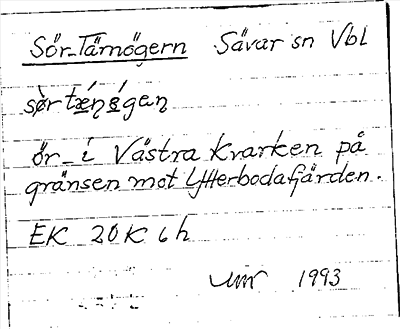 Sör-Tämögern Sävar sn Vbl
ör i Västra Kvarken på
gränsen mot Ytterbodafjärden.
EK 20K 6h
Umr 1993